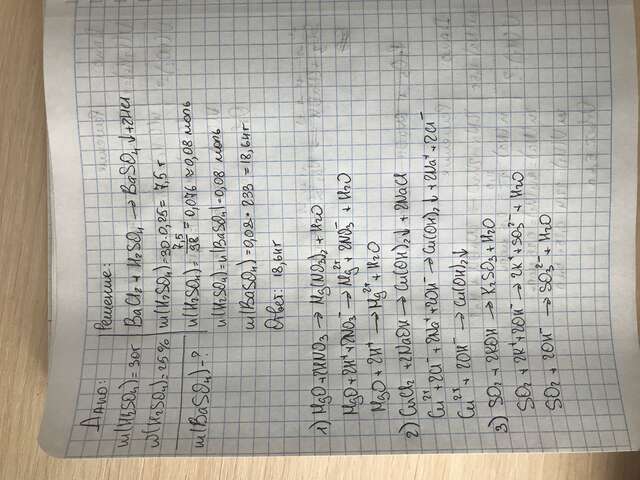 Дано:
m(H₂SO₄)=30г
ω(H₂SO₄)=25%
m(BaSO₄)-?
Решение:
BaCl₂ + H₂SO₄ → BaSO₄↓+2HCl
m(H₂SO₄)=30·0,25= 7,5 г
n(H₂SO₄)= 7,5/98 = 0,076 ≈ 0,08 моль
n(H₂SO₄)=n(BaSO₄)=0,08 моль
m(BaSO₄)=0,08 · 233 =18,64г
Ответ: 18,64г
1) MgO+2HNO₃ → Mg(NO₃)₂ + H₂O
MgO + 2H⁺+2NO₃⁻ → Mg²⁺ + 2NO₃⁻ + H₂O
MgO + 2H⁺ → Mg²⁺ + H₂O
2) CuCl₂ + 2NaOH → Cu(OH)₂↓ + 2NaCl
Cu²⁺ + 2Cl⁻ + 2Na⁺+2OH⁻ → Cu(OH)₂↓ + 2Na⁺+2Cl⁻
Cu²⁺ + 2OH⁻ → Cu(OH)₂↓
3) SO₂ + 2KOH → K₂SO₃ + H₂O
SO₂ + 2K⁺+2OH⁻ → 2K⁺+SO₃²⁻ + H₂O
SO₂ + 2OH⁻ → SO₃²⁻ + H₂O